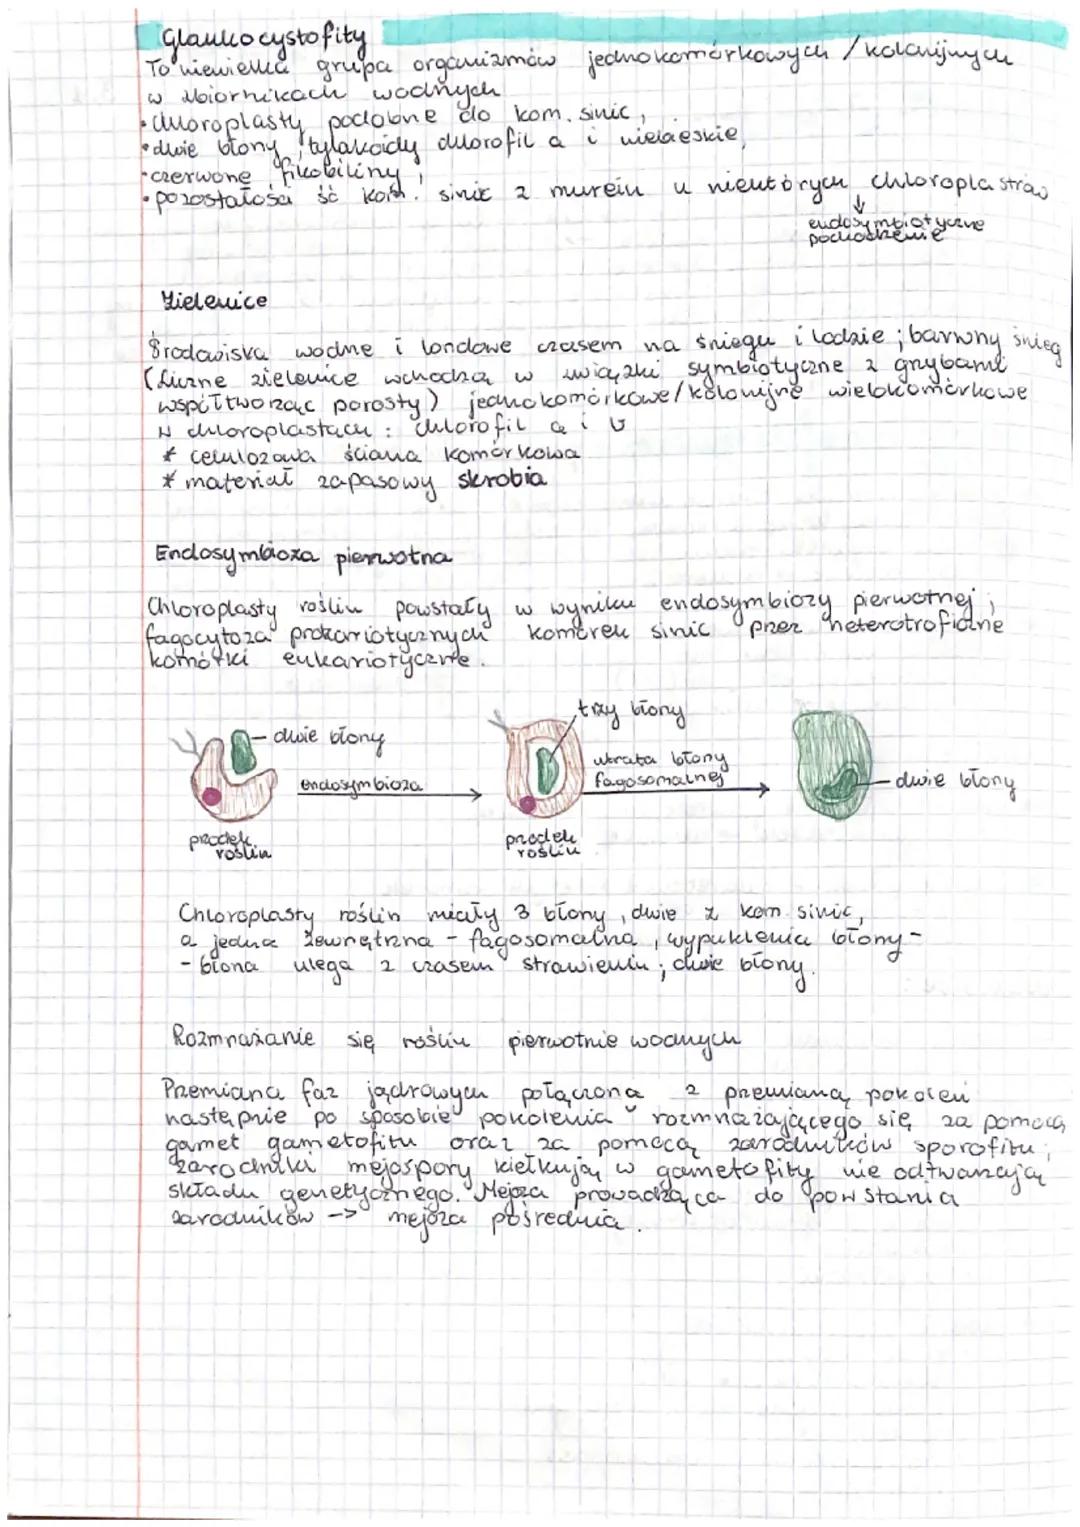 Glaukocystofity
To niewielka grupa organizmów jednokomórkowych / kolonijnych
w zbiornikach wodnych
• chloroplasty podobne do kom. sinic,
• dwie błony, tylakoidy chlorofil a i niebieskie,
• czerwone fikobiliny,
• pozostałości ść kom. sinic z murein u niektórych chloroplastrów
↓
endosymbiotyczne
pochodzenie
Zielenice
Środowiska wodne i londowe czasem na śniegu i lodzie; barwny śnieg
(Liczne zielenice wchodzą w związki symbiotyczne z grzybami
współtworząc porosty) jednokomórkowe/kolonijne wielokomórkowe
W chloroplastach: chlorofil a i b
* celulozowa ściana komórkowa
* materiał zapasowy skrobia
Endosymbioza pierwotna
Chloroplasty roślin powstały w wyniku endosymbiozy pierwotnej;
fagocytoza prokariotycznych komórek sinic przez heterotroficzne
komórki eukariotyczne.
dwie błony
endosymbioza
przodek
roślin
trzy błony
utrata błony
fagosomalnej
przodek
roślin
dwie błony
Chloroplasty roślin miały 3 błony, dwie z kom. sinic,
a jedna zewnętrzna - fagosomalna, wypuklenia błony -
- błona ulega z czasem strawieniu; dwie błony.
Rozmnażanie się roślin pierwotnie wodnych
Przemiana faz jądrowych połączona z przemianą pokoleń
następnie po sposobie pokolenia rozmnażającego się za pomocą
gamet gametofitu oraz za pomocą zarodników sporofitu;
zarodniki mejospory kiełkują w gametofity nie odtwarzają
składu genetycznego. Mejoza prowadząca do powstania
zarodników -> mejoza pośrednia.